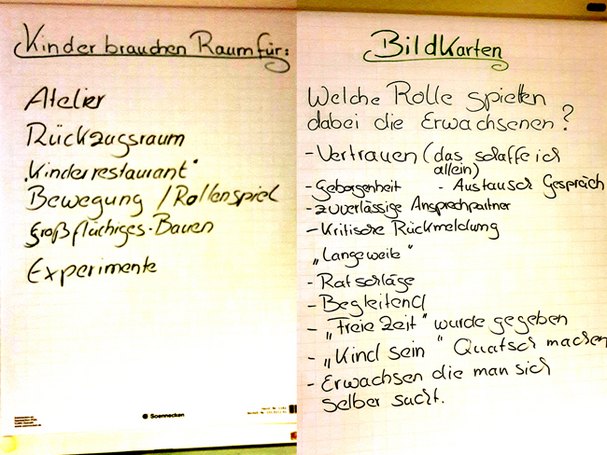 Kinder brauchen Raum für:
Atelier
Rückzugsraum
"Kinderrestaurant"
Bewegung / Rollenspiel
großflächiges-Bauen
Experimente
Soennecken
Bildkarten
Welche Rolle spielten
dabei die Erwachsenen?
- Vertrauen (das schaffe ich
allein)
- Geborgenheit - Austausch Gespräch
- zuverlässige Ansprechpartner
- Kritische Rückmeldung
"Langeweile"
- Ratschläge
- Begleitend
- "Freie Zeit" wurde gegeben
- "Kind sein" Quatsch machen
- Erwachsen die man sich
selber sucht.